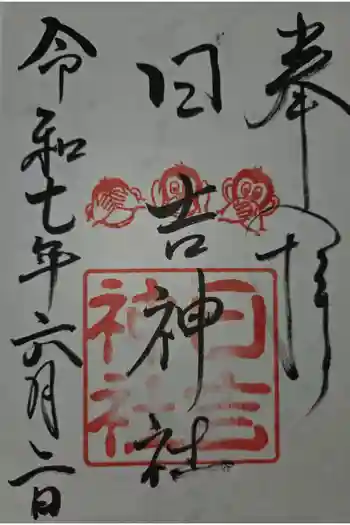 奉拝
日吉神社
令和七年六月二日
日吉
神社